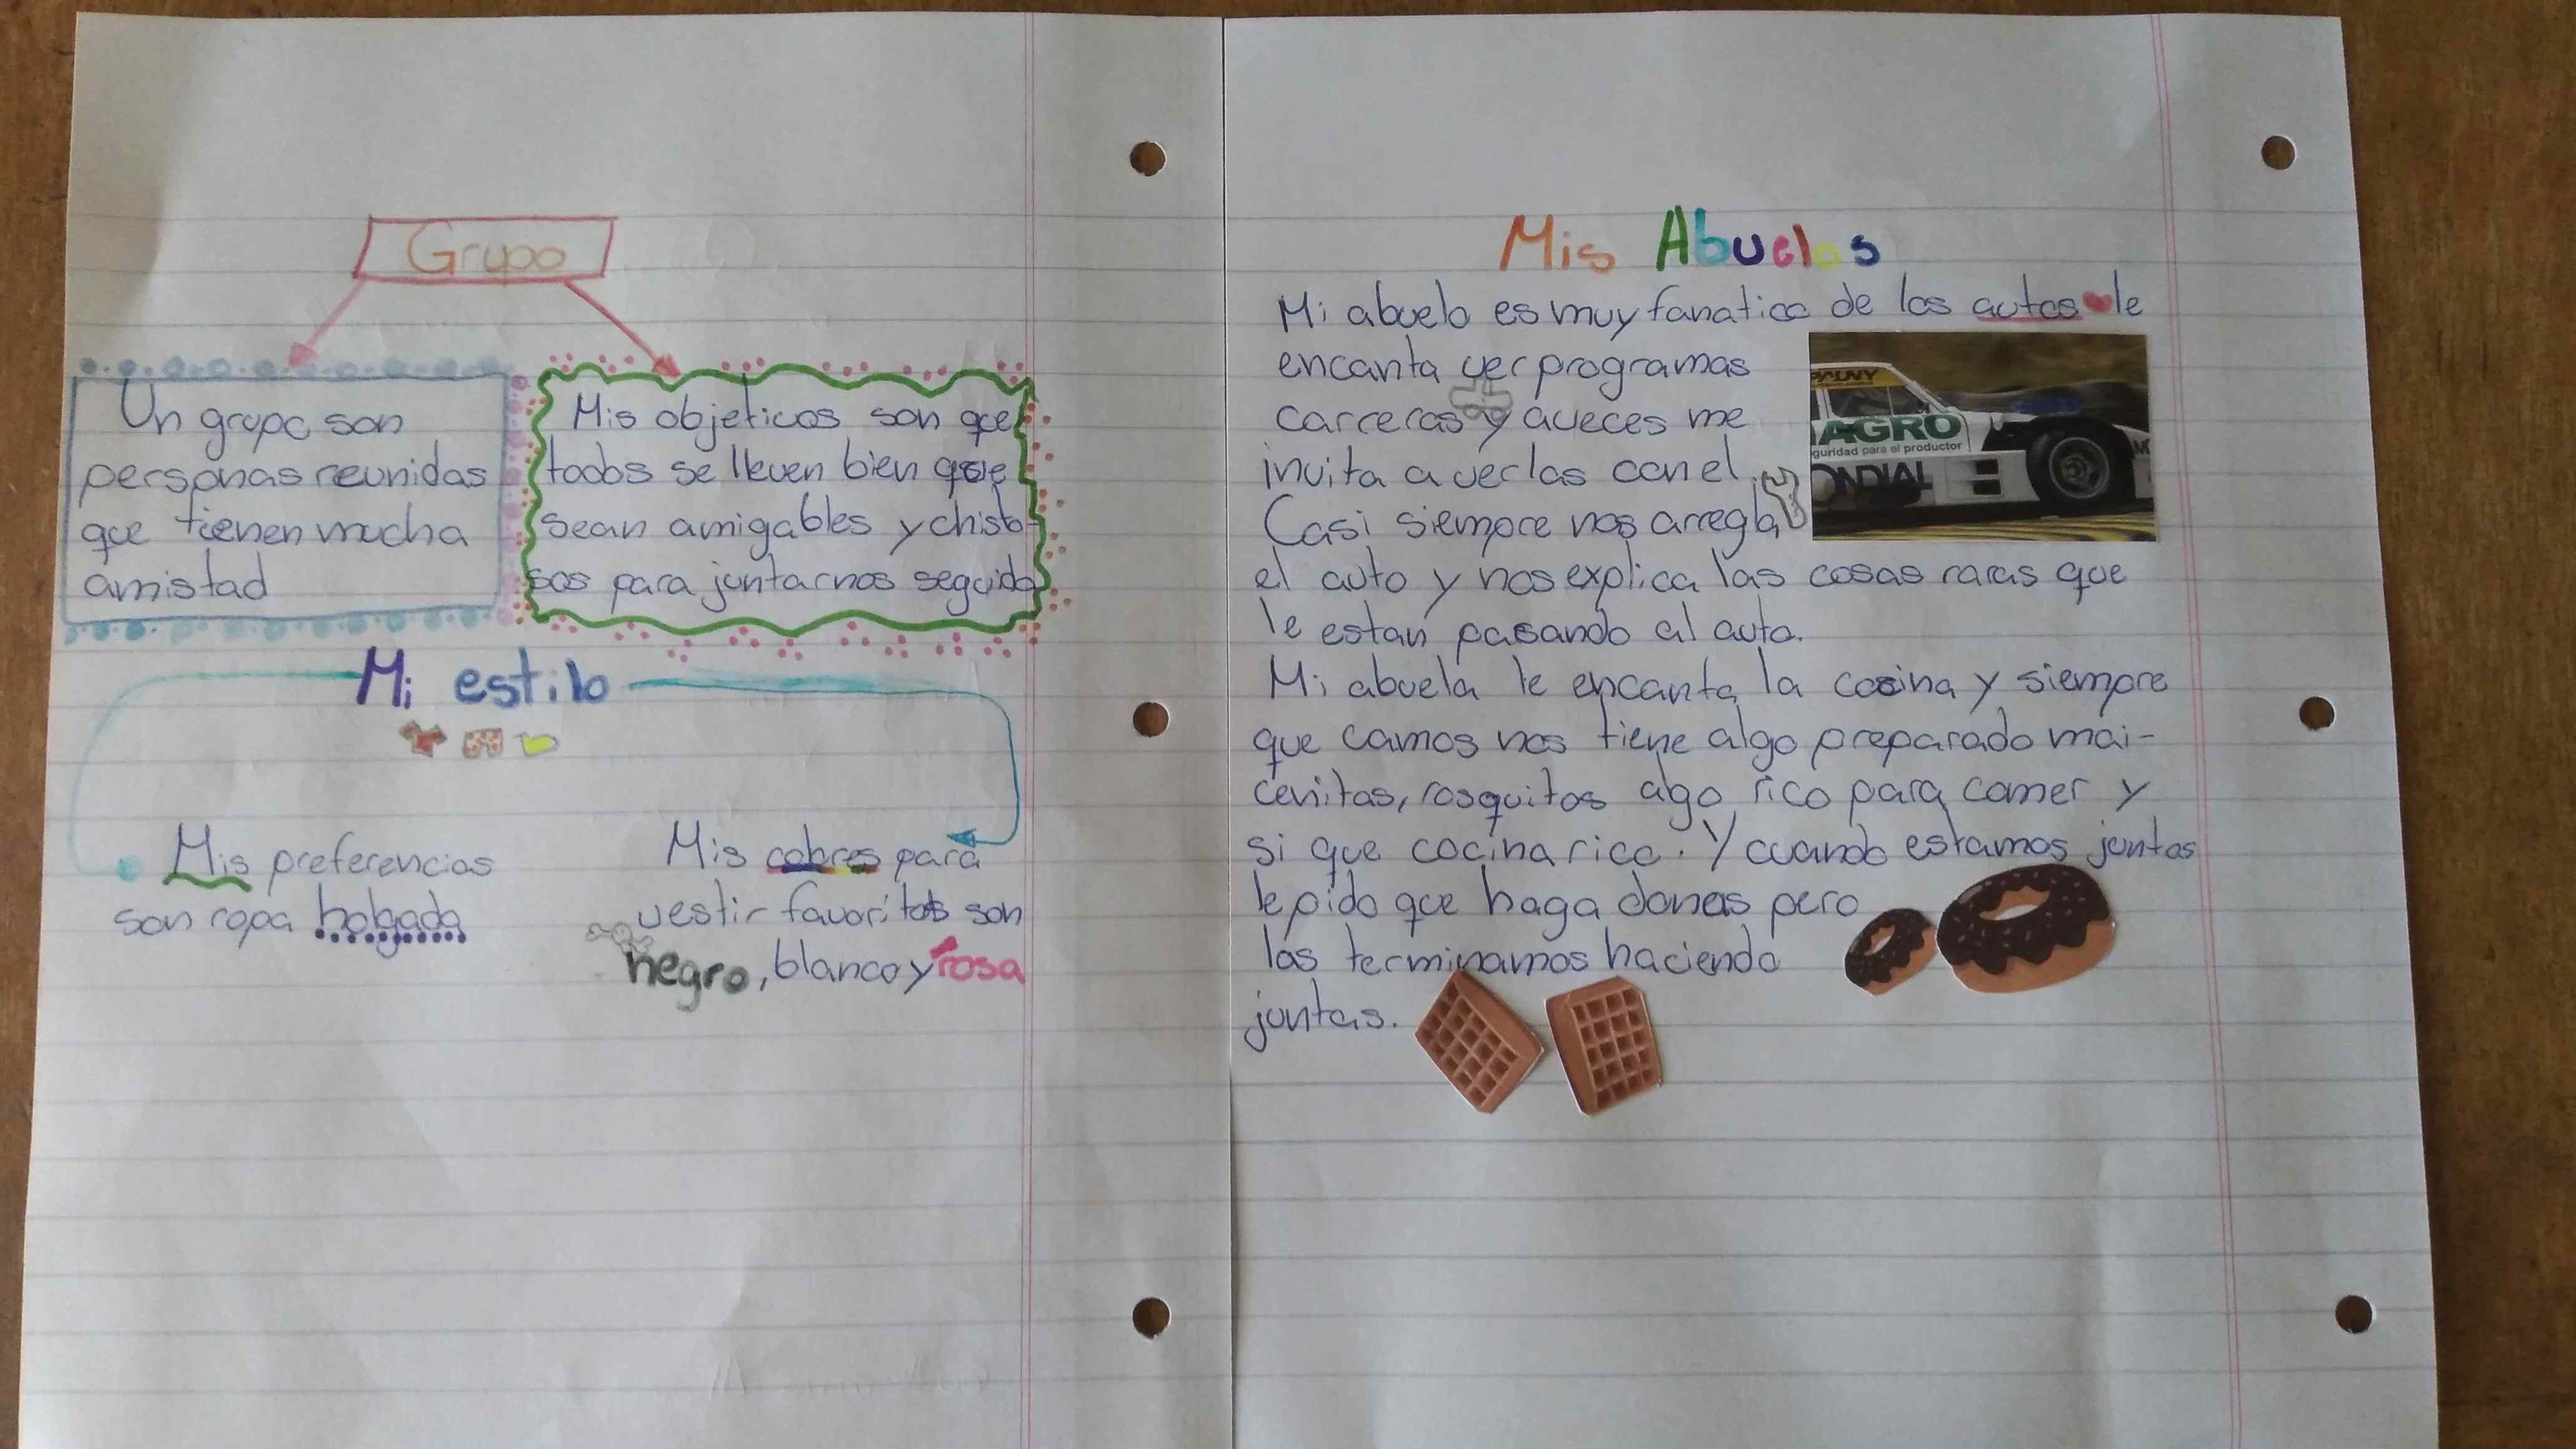 Grupo
Un grupo son
personas reunidas
que tienen mucha
amistad
Mis objeticos son que
todos se lleven bien que
sean amigables y chisto-
sos para juntarnos seguido
Mi estilo
Mis preferencias
son ropa holgada
Mis colores para
vestir favoritos son
negro, blanco y rosa
Mis Abuelos
Mi abuelo es muy fanatico de los autos le
encanta ver programas
carreras y aveces me
invita a verlas con el.
Casi siempre nos arregla
el auto y nos explica las cosas raras que
le estan pasando al auto.
Mi abuela le encanta la cosina y siempre
que vamos nos tiene algo preparado mai-
cenitas, rosquitos algo rico para comer y
si que cocina rico. Y cuando estamos juntas
le pido que haga donas pero
las terminamos haciendo
juntas.
PAUNY
AGRO
guridad para el productor
ONDIAL